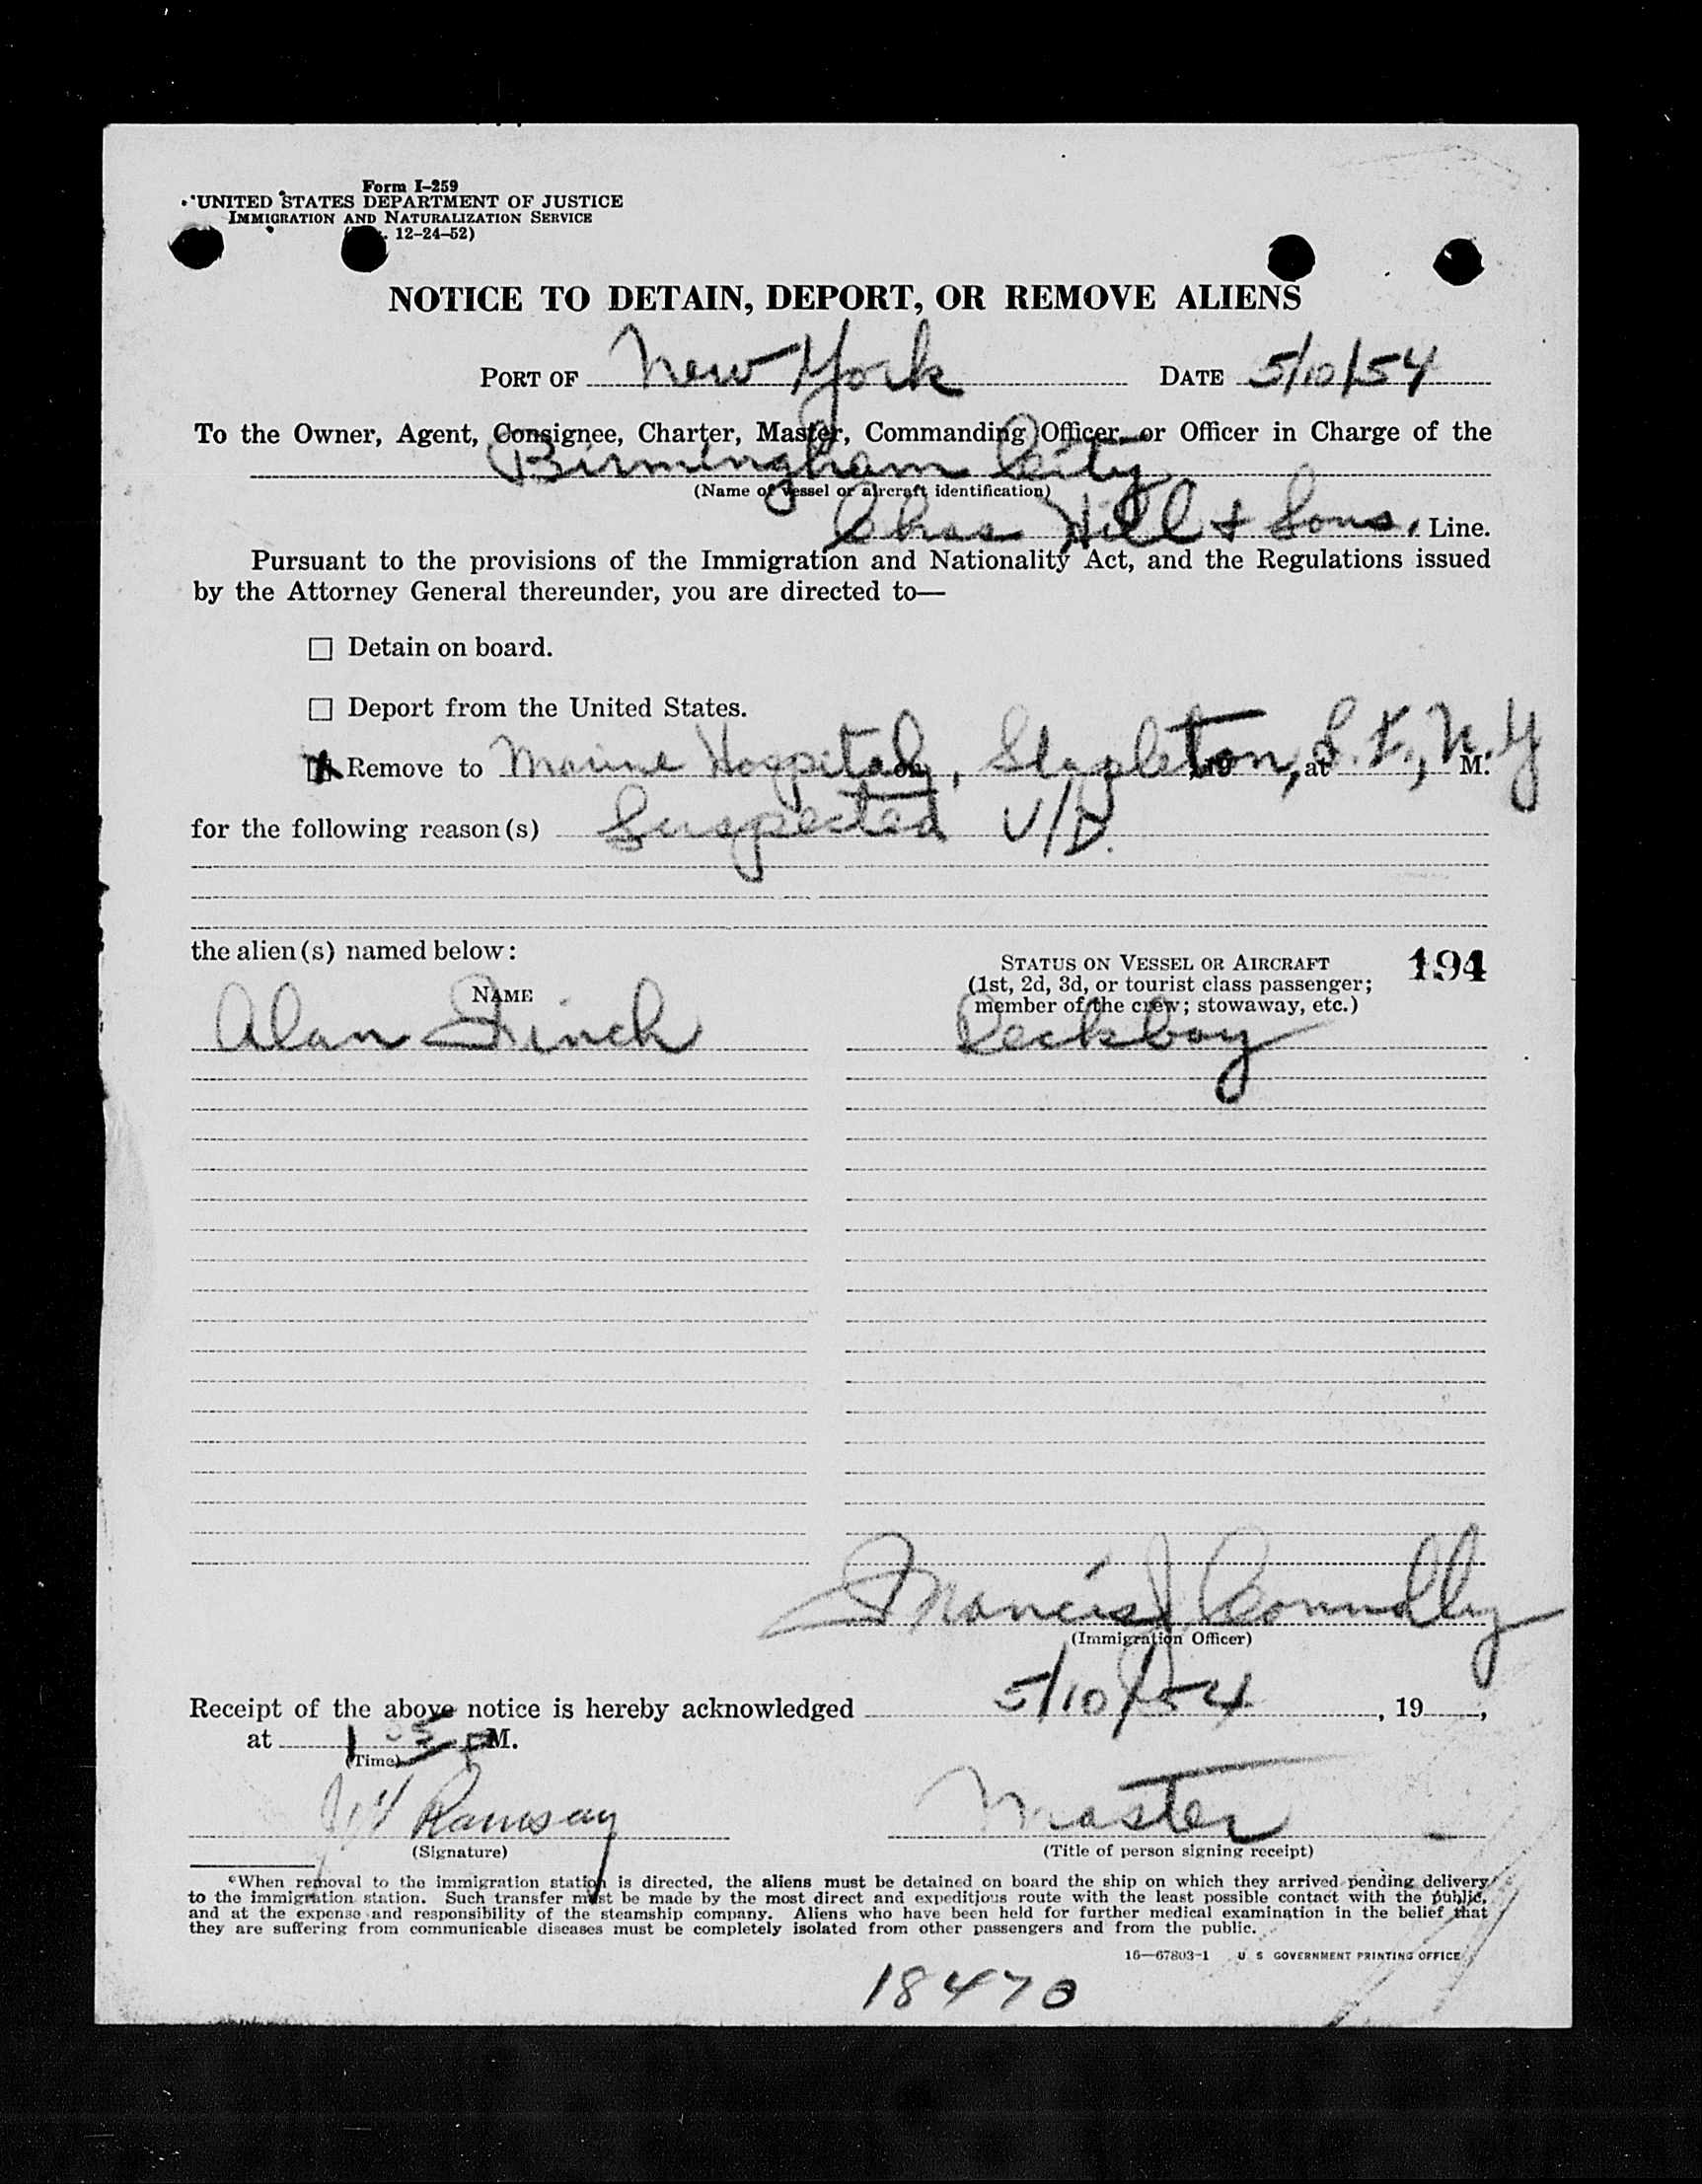 Form I-259
UNITED STATES DEPARTMENT OF JUSTICE
IMMIGRATION AND NATURALIZATION SERVICE
12-24-52)
NOTICE TO DETAIN, DEPORT, OR REMOVE ALIENS
PORT OF New York DATE 5/10/54
To the Owner, Agent, Consignee, Charter, Master, Commanding Officer, or Officer in Charge of the
Birmingham City
(Name of vessel or aircraft identification)
Chas Hill & Sons, Line.
Pursuant to the provisions of the Immigration and Nationality Act, and the Regulations issued
by the Attorney General thereunder, you are directed to—
☐ Detain on board.
☐ Deport from the United States.
Remove to Marine Hospital, on Stapleton, S.I., N.Y , 19 , at M.
for the following reason(s) Suspected V/D.
the alien(s) named below:
STATUS ON VESSEL OR AIRCRAFT 194
NAME (1st, 2d, 3d, or tourist class passenger;
member of the crew; stowaway, etc.)
Alan Finch Deckboy
Francis J Connolly
(Immigration Officer)
Receipt of the above notice is hereby acknowledged 5/10/54, 19 ,
at 1 P M.
(Time)
Ramsay Master
(Signature) (Title of person signing receipt)
*When removal to the immigration station is directed, the aliens must be detained on board the ship on which they arrived pending delivery
to the immigration station. Such transfer must be made by the most direct and expeditious route with the least possible contact with the public,
and at the expense and responsibility of the steamship company. Aliens who have been held for further medical examination in the belief that
they are suffering from communicable diseases must be completely isolated from other passengers and from the public.
16—67803-1 U S GOVERNMENT PRINTING OFFICE
18470